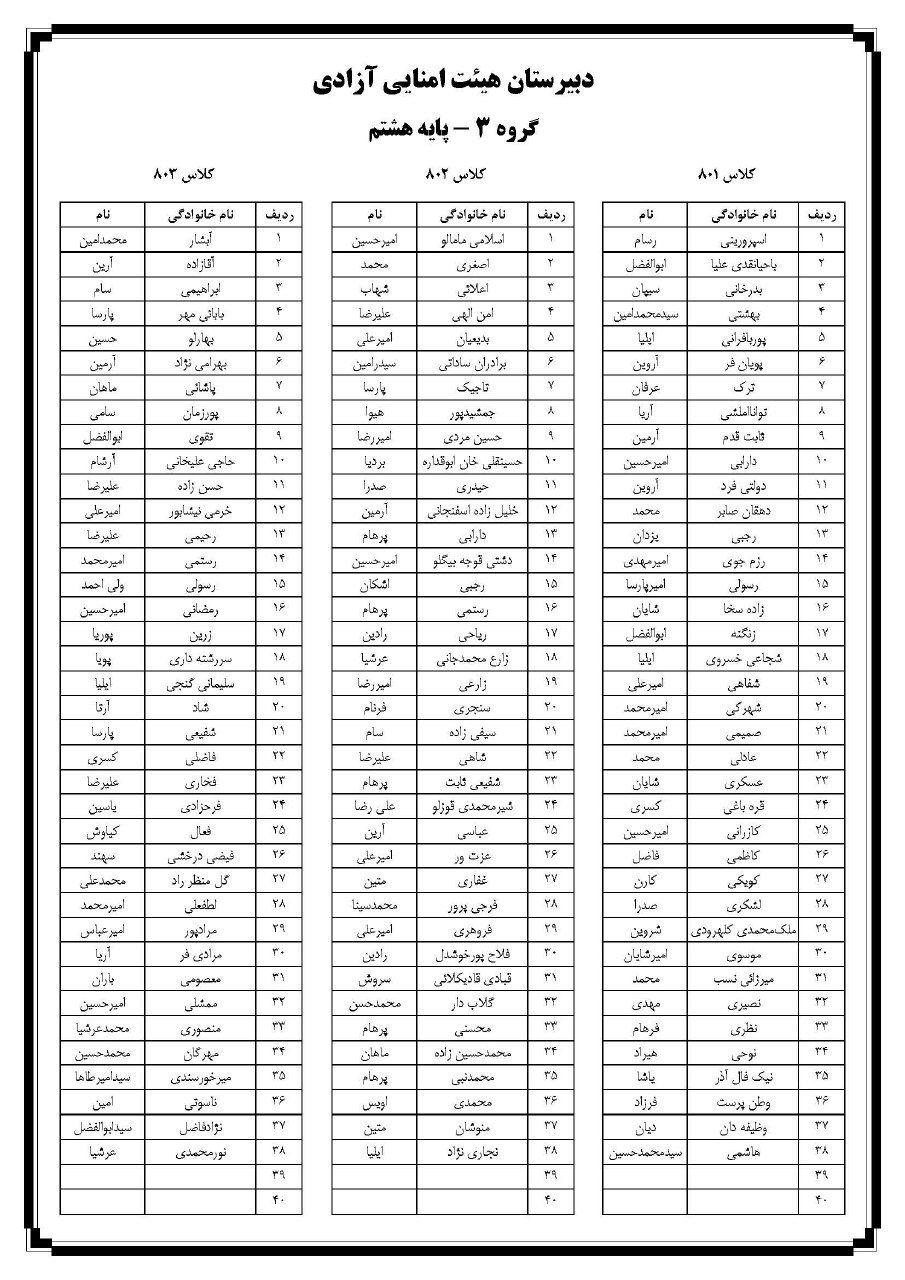 دبیرستان هیئت امنایی آزادی
گروه ۳ - پایه هشتم
کلاس ۸۰۱
ردیف نام خانوادگی نام
۱ اسپرورینی رسام
۲ باحیانقدی علیا ابوالفضل
۳ بدرخانی سپهان
۴ بهشتی سیدمحمدامین
۵ پوربافرانی ایلیا
۶ پویان فر آروین
۷ ترک عرفان
۸ تواناملشی آریا
۹ ثابت قدم آرمین
۱۰ دارابی امیرحسین
۱۱ دولتی فرد آروین
۱۲ دهقان صابر محمد
۱۳ رجبی یزدان
۱۴ رزم جوی امیرمهدی
۱۵ رسولی امیرپارسا
۱۶ زاده سخا شایان
۱۷ زنگنه ابوالفضل
۱۸ شجاعی خسروی ایلیا
۱۹ شفاهی امیرعلی
۲۰ شهرکی امیرمحمد
۲۱ صمیمی امیرمحمد
۲۲ عادلی محمد
۲۳ عسکری شایان
۲۴ قره باغی کسری
۲۵ کازرانی امیرحسین
۲۶ کاظمی فاضل
۲۷ کویکی کارن
۲۸ لشکری صدرا
۲۹ ملک‌محمدی کلهرودی شروین
۳۰ موسوی امیرشایان
۳۱ میرزائی نسب محمد
۳۲ نصیری مهدی
۳۳ نظری فرهام
۳۴ نوحی هیراد
۳۵ نیک فال آذر پاشا
۳۶ وطن پرست فرزاد
۳۷ وظیفه دان دیان
۳۸ هاشمی سیدمحمدحسین
۳۹
۴۰
کلاس ۸۰۲
ردیف نام خانوادگی نام
۱ اسلامی مامالو امیرحسین
۲ اصغری محمد
۳ اعلائی شهاب
۴ امن الهی علیرضا
۵ بدیعیان امیرعلی
۶ برادران ساداتی سیدرامین
۷ تاجیک پارسا
۸ جمشیدپور هیوا
۹ حسین مردی امیررضا
۱۰ حسینقلی خان ابوقداره بردیا
۱۱ حیدری صدرا
۱۲ خلیل زاده اسفنجانی آرمین
۱۳ دارابی پرهام
۱۴ دشتی قوجه بیگلو امیرحسین
۱۵ رجبی اشکان
۱۶ رستمی پرهام
۱۷ ریاحی رادین
۱۸ زارع محمدجانی عرشیا
۱۹ زارعی امیررضا
۲۰ سنجری فرنام
۲۱ سیفی زاده سام
۲۲ شاهی علیرضا
۲۳ شفیعی ثابت پرهام
۲۴ شیرمحمدی قوزلو علی رضا
۲۵ عباسی آرین
۲۶ عزت ور امیرعلی
۲۷ غفاری متین
۲۸ فرجی پرور محمدسینا
۲۹ فروهری امیرعلی
۳۰ فلاح پورخوشدل رادین
۳۱ قبادی قادیکلائی سروش
۳۲ گلاب دار محمدحسن
۳۳ محسنی پرهام
۳۴ محمدحسین زاده ماهان
۳۵ محمدنبی پرهام
۳۶ محمدی اویس
۳۷ منوشان متین
۳۸ نجاری نژاد ایلیا
۳۹
۴۰
کلاس ۸۰۳
ردیف نام خانوادگی نام
۱ آبشار محمدامین
۲ آقازاده آرین
۳ ابراهیمی سام
۴ بابائی مهر پارسا
۵ بهارلو حسین
۶ بهرامی نژاد آرمین
۷ پاشائی ماهان
۸ پورزمان سامی
۹ تقوی ابوالفضل
۱۰ حاجی علیخانی آرشام
۱۱ حسن زاده علیرضا
۱۲ خرمی نیشابور امیرعلی
۱۳ رحیمی علیرضا
۱۴ رستمی امیرمحمد
۱۵ رسولی ولی احمد
۱۶ رمضانی امیرحسین
۱۷ زرین پوریا
۱۸ سررشته داری پویا
۱۹ سلیمانی گنجی ایلیا
۲۰ شاد آرتا
۲۱ شفیعی پارسا
۲۲ فاضلی کسری
۲۳ فخاری علیرضا
۲۴ فرحزادی یاسین
۲۵ فعال کیاوش
۲۶ فیضی درخشی سهند
۲۷ گل منظر راد محمدعلی
۲۸ لطفعلی امیرمحمد
۲۹ مرادپور امیرعباس
۳۰ مرادی فر آریا
۳۱ معصومی باران
۳۲ ممشلی امیرحسین
۳۳ منصوری محمدعرشیا
۳۴ مهرگان محمدحسین
۳۵ میرخورسندی سیدامیرطاها
۳۶ ناسوتی امین
۳۷ نژادفاضل سیدابوالفضل
۳۸ نورمحمدی عرشیا
۳۹
۴۰